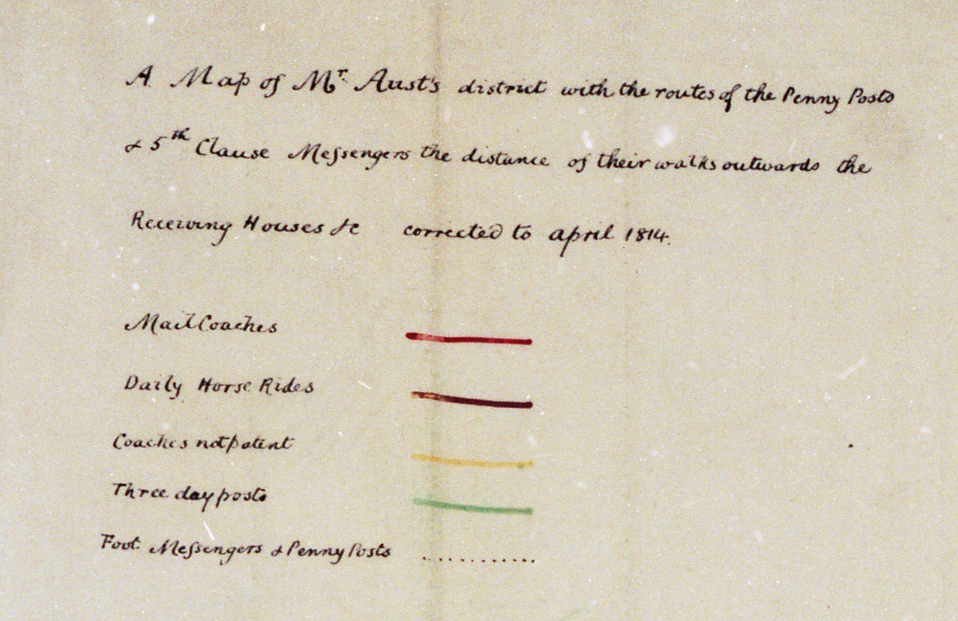 A Map of Mr. Aust's district with the routes of the Penny Posts
& 5th Clause Messengers the distance of their walks outwards the
Receiving Houses &c corrected to april 1814.
Mail Coaches
Daily Horse Rides
Coaches not patent
Three day posts
Foot Messengers & Penny Posts